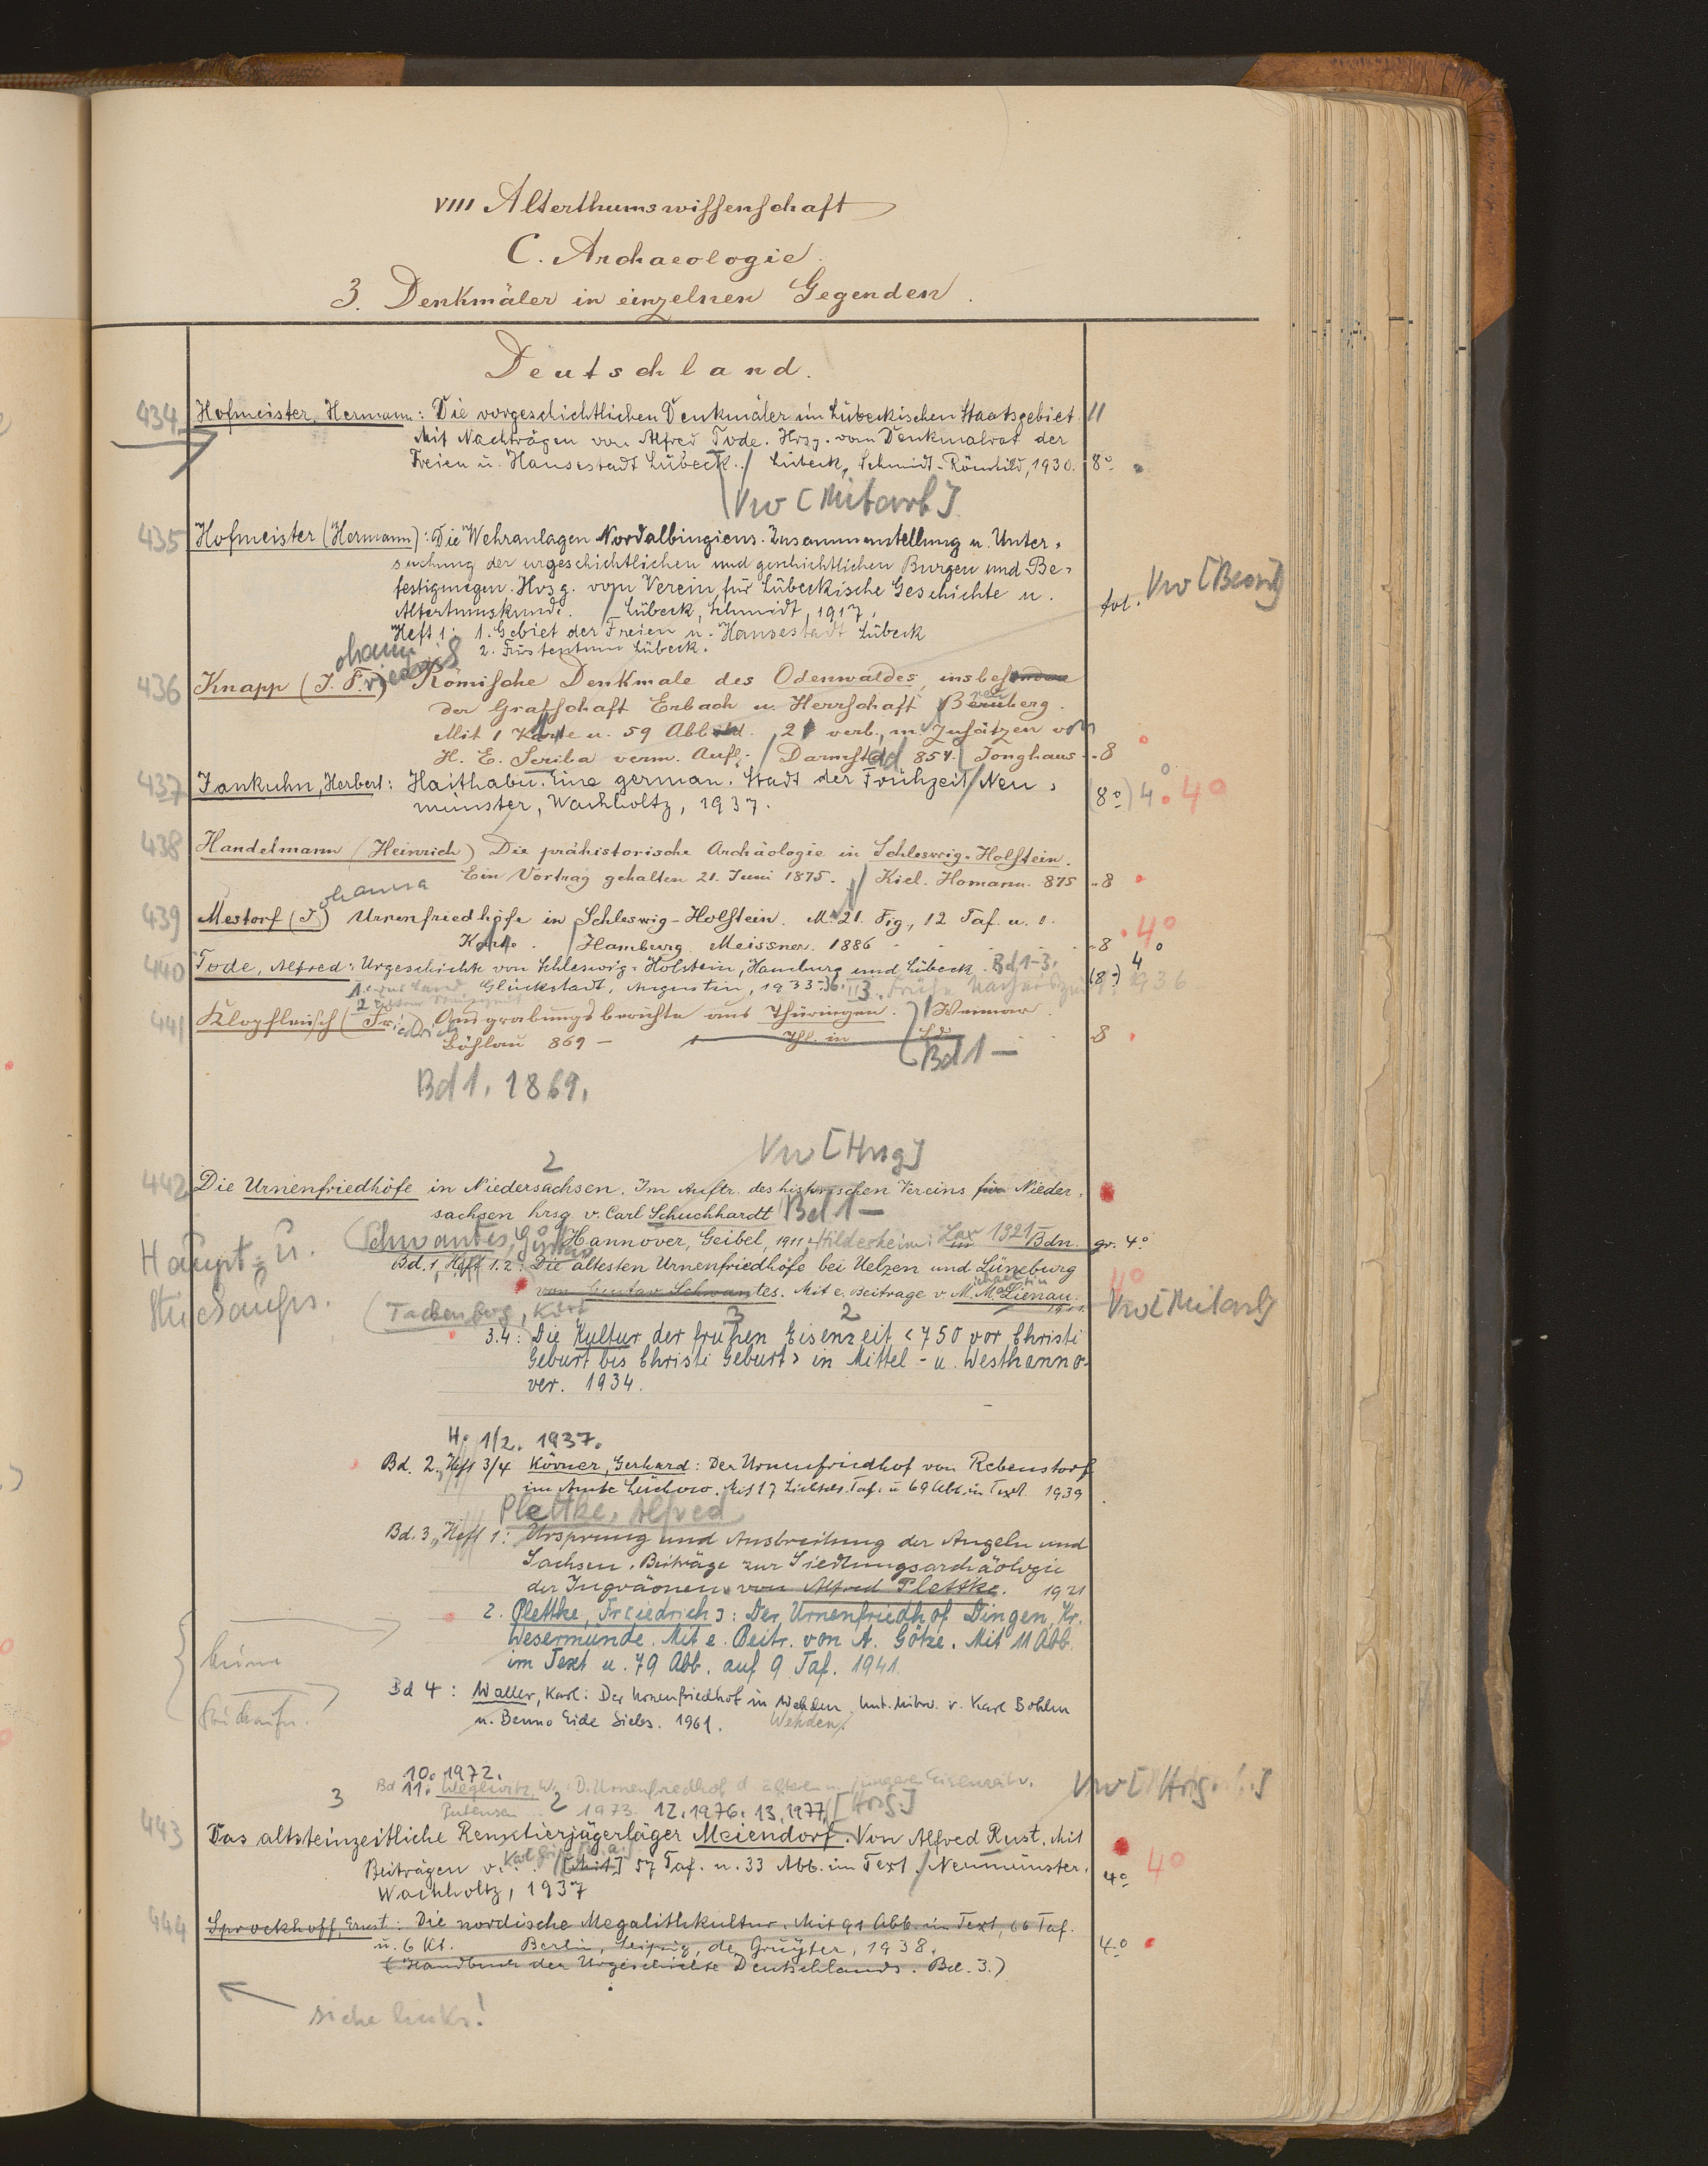 VIII Alterthumswissenschaft
C. Archaeologie.
3. Denkmäler in einzelnen Gegenden.
Deutschland.
434 Hofmeister, Hermann: Die vorgeschichtlichen Denkmäler im Lübeckischen Staatsgebiet. 11
Mit Nachträgen von Alfred Tode. Hrsg. vom Denkmalrat der
Freien u. Hansestadt Lübeck. / Lübeck, Schmidt-Römhild, 1930. 8°
Vw [Mitarb]
435 Hofmeister (Hermann): Die Wehranlagen Nordalbingiens. Zusammenstellung u. Unter-
suchung der urgeschichtlichen und geschichtlichen Burgen und Be-
festigungen. Hrsg. vom Verein für Lübeckische Geschichte u.
Altertumskunde. / Lübeck, Schmidt, 1917. fol. Vw
Heft 1: 1. Gebiet der Freien u. Hansestadt Lübeck
2. Fürstentum Lübeck.
ohann
436 Knapp (J. Friedrich) Römische Denkmale des Odenwaldes, insbesondere
der Grafschaft Erbach u. Herrschaft Breuberg.
Mit 1 Karte u. 59 Abbild. 2 verb., m. Zusätzen von
H. E. Scriba verm. Aufl. / Darmstadt 854. Jonghaus - 8
437 Jankuhn, Herbert: Haithabu. Eine german. Stadt der Frühzeit / Neu-
münster, Wachholtz, 1937. (8°) 4° 4°
438 Handelmann (Heinrich) Die prähistorische Archäologie in Schleswig-Holstein.
Ein Vortrag gehalten 21. Juni 1875. // Kiel. Homann. 875 - 8
ohanna
439 Mestorf (J) Urnenfriedhöfe in Schleswig-Holstein. M. 21. Fig., 12 Taf. u. 1.
Karte. / Hamburg. Meissner. 1886 - 8 4°
440 Tode, Alfred: Urgeschichte von Schleswig-Holstein, Hamburg und Lübeck. Bd 1-3.
Glückstadt, Augustin, 1933-36. (8°) 4° 1936
441 Klopfleisch (Friedrich) Ausgrabungsberichte aus Thüringen. Weimar.
Böhlau 869 - 8
Bd 1 -
Bd 1. 1869.
Vw [Hrsg]
2
442 Die Urnenfriedhöfe in Niedersachsen. Im Auftr. des historischen Vereins für Nieder-
sachsen hrsg v. Carl Schuchhardt Bd 1 -
Haupt- u. (Schwantes, Gustav / Hannover, Geibel, 1911 Hildesheim: Lax 1921 - Bdn. gr. 4°
Bd. 1, Heft 1.2: Die ältesten Urnenfriedhöfe bei Uelzen und Lüneburg
Stichaufn. von Gustav Schwantes. Mit e. Beitrage v. M. M. Lienau. 1911. Vw [Mitarb]
(Tackenberg, Kurt 3 2
3.4: Die Kultur der frühen Eisenzeit <750 vor Christi
Geburt bis Christi Geburt> in Mittel- u. Westhanno-
ver. 1934.
H. 1/2. 1937.
Bd. 2. Heft 3/4 Körner, Gerhard: Der Urnenfriedhof von Rebenstorf
im Amte Lüchow. Mit 17 Lichtdr. Taf. u 69 Abb. im Text. 1939
Plettke, Alfred
Bd. 3, Heft 1: Ursprung und Ausbreitung der Angeln und
Sachsen. Beiträge zur Siedlungsarchäologie
der Ingväonen von Alfred Plettke. 1921
2. Plettke, Fr[iedrich]: Der Urnenfriedhof Dingen, Kr.
Wesermünde. Mit e. Beitr. von A. Götze. Mit 11 Abb.
im Text u. 79 Abb. auf 9 Taf. 1941.
Bd 4: Waller, Karl: Der Urnenfriedhof in Wehden. Unt. Mitw. v. Karl Bohlen
u. Benno Eide Siebs. 1961. Wehden
10. 1972.
Bd 11. Wegewitz, W.: D. Urnenfriedhof d. älteren u. jüngere Eisenzeit v.
3 Putensen. 2 1973. 12. 1976. 13. 1977 [Hrsg.]
443 Das altsteinzeitliche Renntierjägerlager Meiendorf. Von Alfred Rust. Mit
Beiträgen v. [Mit] 57 Taf. u. 33 Abb. im Text. / Neumünster, 4° 4°
Wachholtz, 1937
444 Sprockhoff, Ernst: Die nordische Megalithkultur. Mit 91 Abb. im Text, 66 Taf.
u. 6 Kt. Berlin, Leipzig, de Gruyter, 1938. 4°
(Handbuch der Urgeschichte Deutschlands. Bd. 3.)
siehe links!